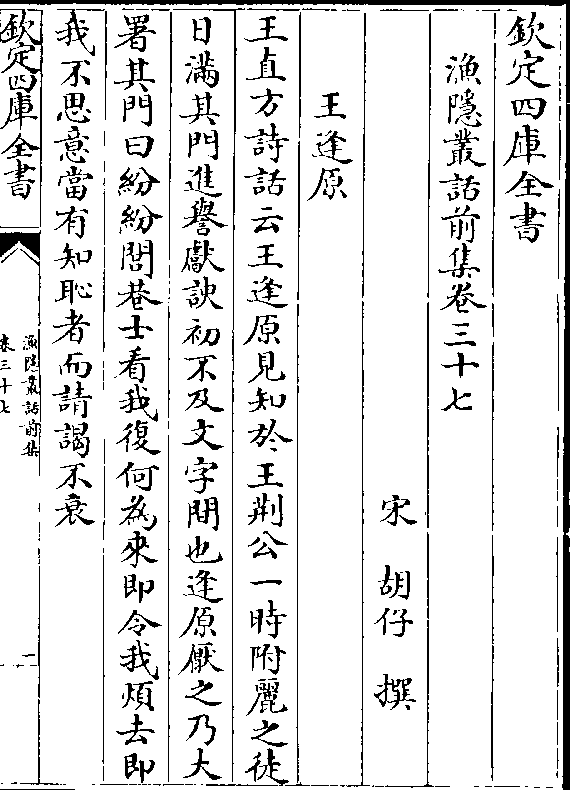 欽定四庫全書
漁隱叢話前集卷三十七
宋 胡仔 撰
王逢原
王直方詩話云王逢原見知於王荆公一時附麗之徒
日滿其門進譽獻諛初不及文字間也逢原厭之乃大
署其門曰紛紛閭巷士看我復何為來即令我煩去即
我不思意當有知恥者而請謁不衰
欽定四庫全書
漁隱叢話前集
卷三十七
一